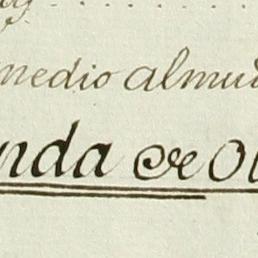 medio almud
nda de Ol